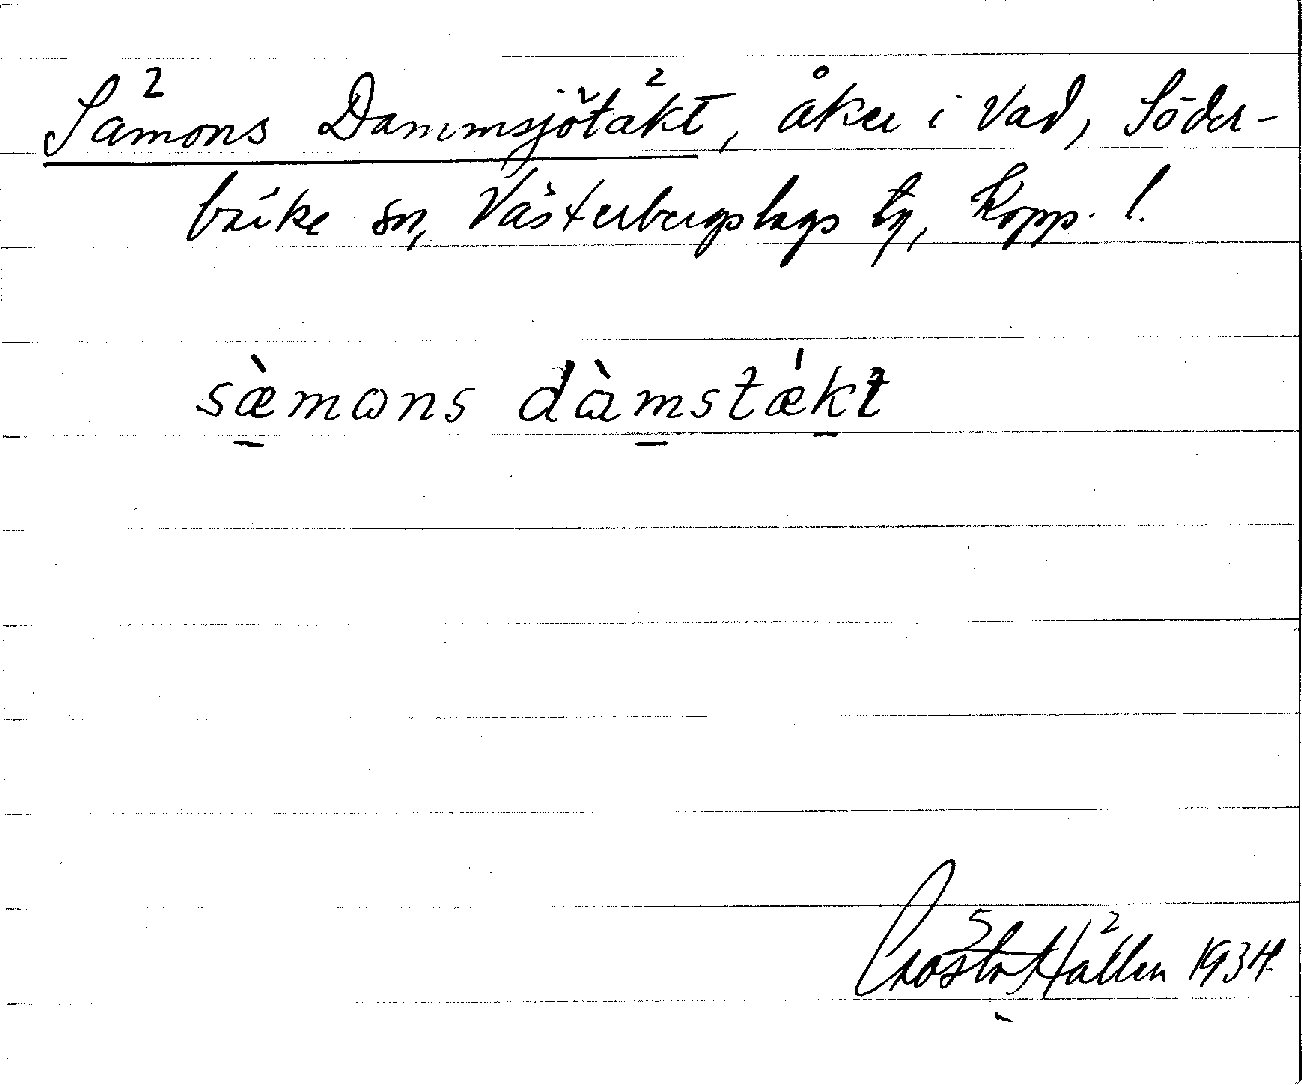 Sämons Dammsjötäkt, åker i Vad, Söder-
bärke sn, Västerbergslags tg, Kopp. l.
sæ̀mɷns dàmstǽkt
Gösta Hallén 1934